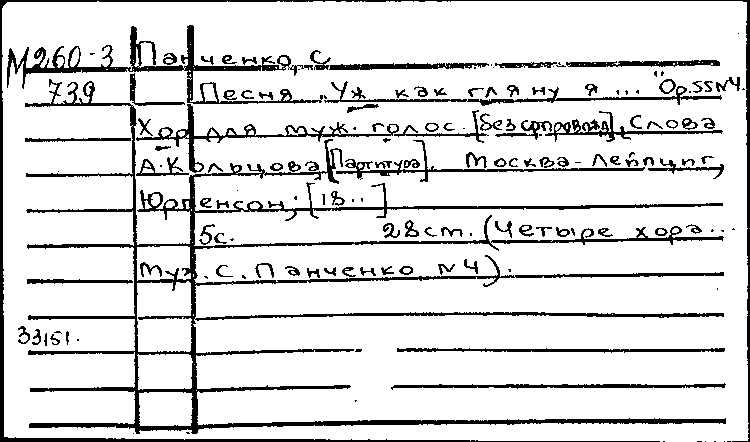 М260-3 Панченко, С
739 Песня „Уж как гляну я ... " Ор.55 N4.
Хор для муж. голос. [без сопровожд], Слова
А. Кольцова [Партитура]. Москва - Лейпциг,
Юргенсон; [18..]
5с. 28 ст. (Четыре хора...
Муз. С. Панченко N4).
33151.